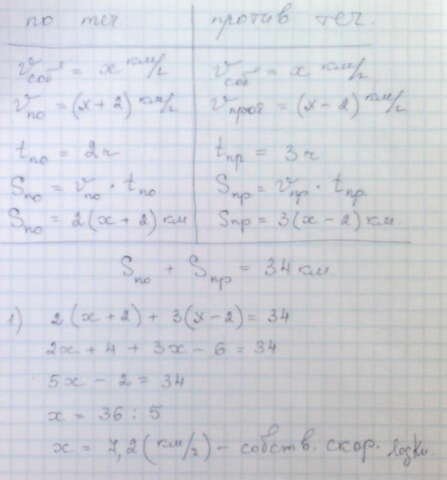 по теч против теч.
Vсоб = x км/г Vсоб = x км/г
Vпо = (x+2) км/г Vпрот = (x-2) км/г
tпо = 2ч tпр = 3ч
Sпо = Vпо · tпо Sпр = Vпр · tпр
Sпо = 2(x+2) км Sпр = 3(x-2) км.
Sпо + Sпр = 34 км
1) 2(x+2) + 3(x-2) = 34
2x + 4 + 3x - 6 = 34
5x - 2 = 34
x = 36 : 5
x = 7,2 (км/г) - собств. скор. лодки.